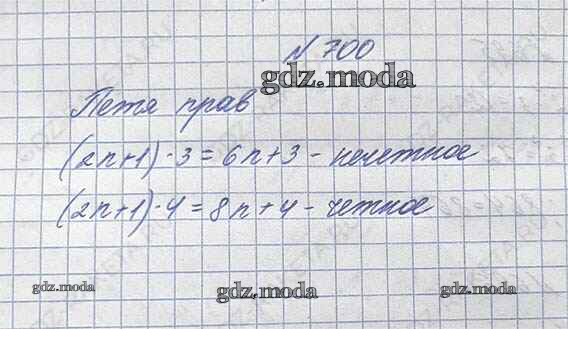 N 700
gdz.moda
Петя прав
(2n+1)·3 = 6n+3 - нечетное
(2n+1)·4 = 8n+4 - четное
gdz.moda
gdz.moda
gdz.moda